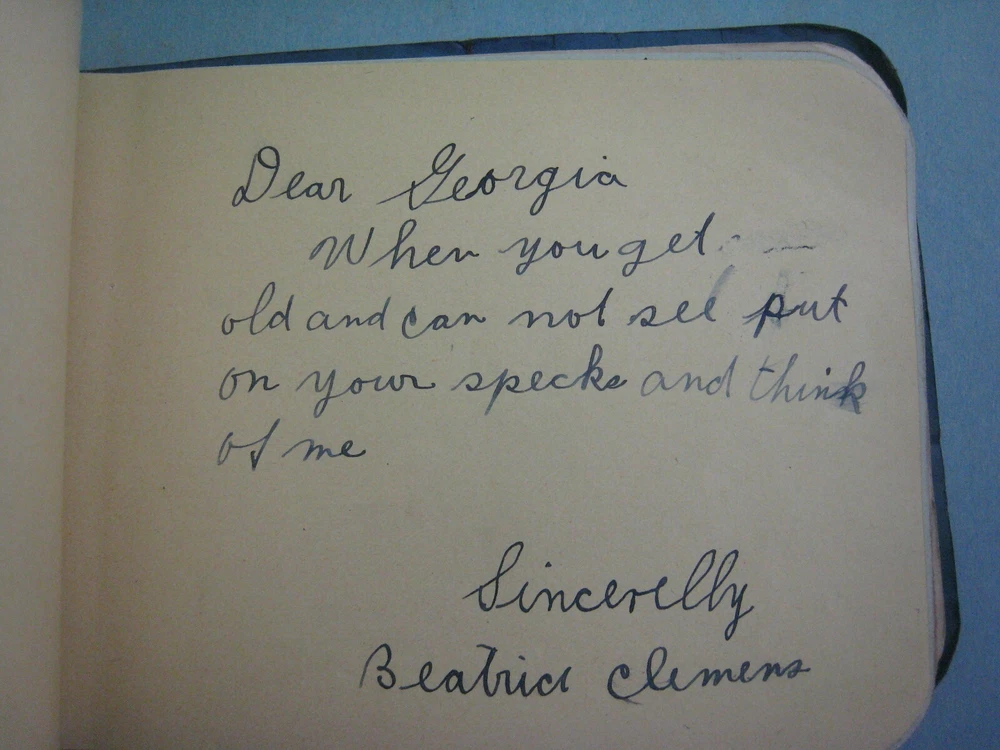 Dear Georgia
When you get
old and can not see put
on your specks and think
of me
Sincerelly
Beatrice Clemens